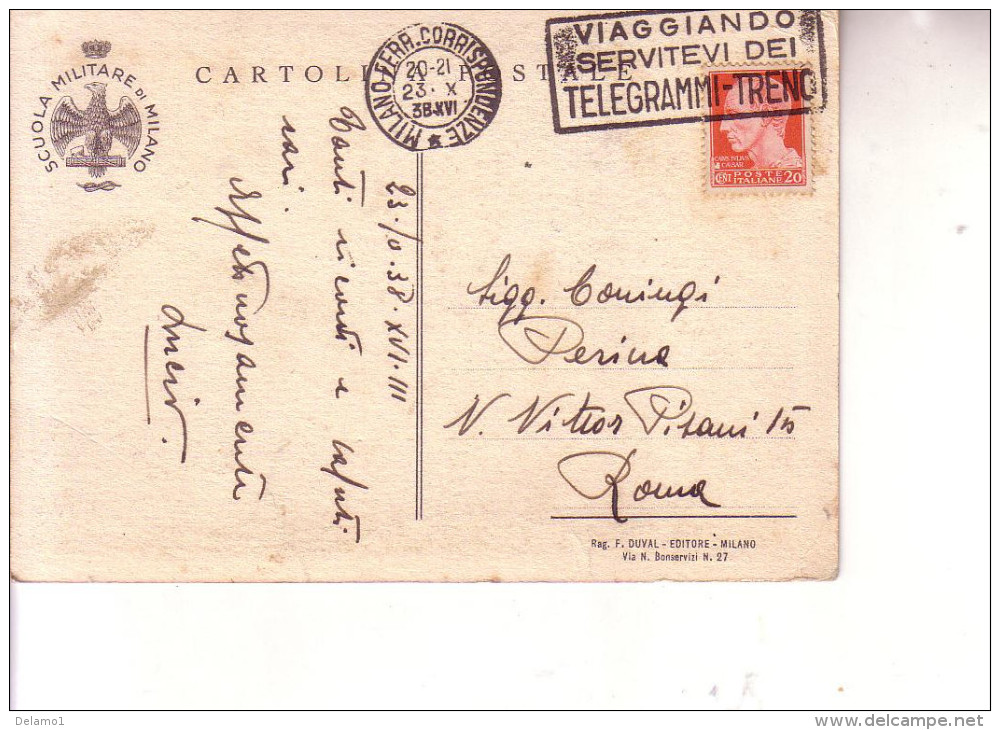 SCUOLA MILITARE DI MILANO
CARTOLINA POSTALE
MILANO.FERR.CORRISPONDENZE
20-21
23. X
38.XVI
VIAGGIANDO
SERVITEVI DEI
TELEGRAMMI-TRENO
CAESAR
CENT POSTE ITALIANE 20
23.10.38.XVI.III
Tanti ricordi e saluti
cari.
Affettuosamente
Sigg. Coniugi
Perina
V. Vittor Pisani 15
Roma
Rag. F. DUVAL - EDITORE - MILANO
Via N. Bonservizi N. 27
Delamo1
delcampe.net